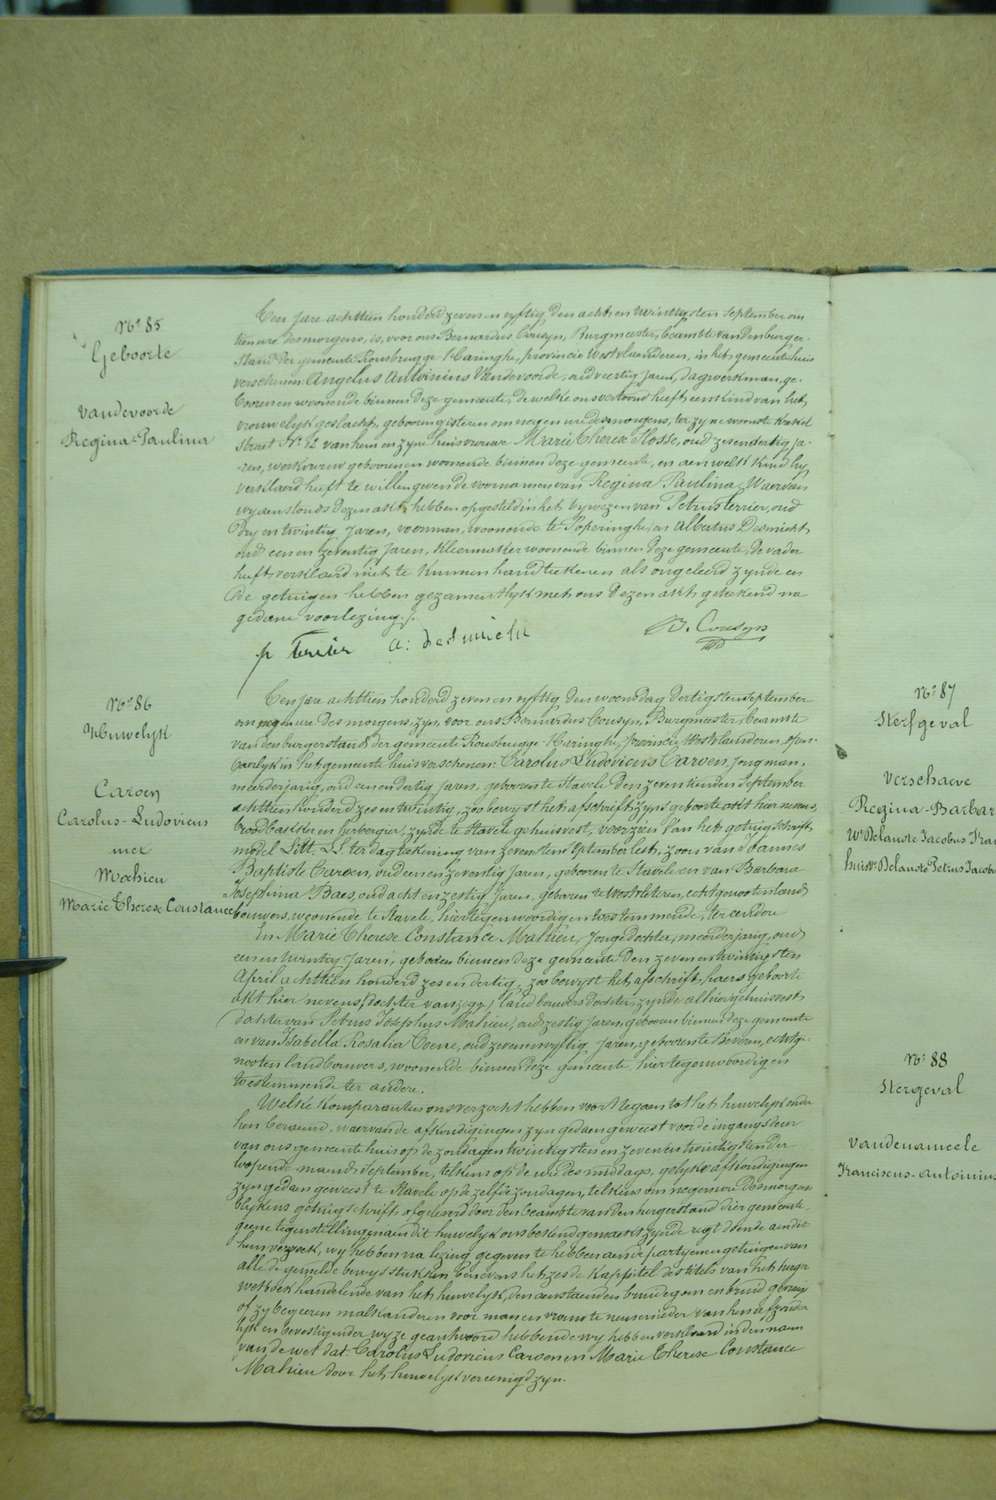 N° 85
Geboorte
Vandevoorde
Regina-Paulina
Ten jare achttien honderd zeven en vyftig den acht en twintigsten September om
tien ure des morgens, is, voor ons Bernardus Cousyn, Burgmeester, beambte van den burger-
stand der gemeente Rousbrugge-Haringhe, provincie Westvlaanderen, in het gemeentehuis
verschenen Angelus Antoinius Vandevoorde, oud veertig Jaren, dagwerkman, ge-
boren en woonende binnen deze gemeente, de welke ons vertoond heeft een kind van het
vrouwelyk geslacht, geboren gisteren om negen ure des morgens, ter zyne woonste
straat N° 12 van hem en zyne huisvrouw Marie Therese Flosse, oud zes en dertig ja-
ren, werkvrouw geboren en woonende binnen deze gemeente, en aen welk kind hy
verklaard heeft te willen geven de voornamen van Regina Paulina, Waervan
wy aenstonds dezen akt hebben opgesteld in het bywezen van Petrus Terrier, oud
dry en twintig Jaren, voerman, woonende te Poperinghe, en Albertus Desmicht,
oud een en zeventig Jaren, kleermaker woonende binnen deze gemeente, de vader
heeft verklaard niet te kunnen handteekenen als ongeleerd zynde en
de getuigen hebben gezamentlyk met ons dezen akt geteekend na
gedane voorlezing./.
p terrier a: desmicht B. Cousyn
N° 86
Huwelyk
Caroen
Carolus-Ludovicus
met
Mahieu
Marie Therese Constance
Ten jare achttien honderd zeven en vyftig den woensdag dertigsten September
om negen ure des morgens, zyn, voor ons Bernardus Cousyn, Burgmeester, beambte
van den burgerstand der gemeente Rousbrugge-Haringhe, provincie Westvlaanderen, open-
baerlyk in het gemeentehuis verschenen: Carolus Ludovicus Caroen, jongman,
meerderjarig, oud een en dertig jaren, geboren te Stavele den zeventienden September
achttien honderd zes en twintig, zoo bewyst het afschrift zyns geboorte akt hier nevens,
broodbakker en herbergier, zynde te Stavele gehuisvest, voorzien van het getuigschrift
model Litt. L. ter dagteekening van zevensten September lest, zoon van Joannes
Baptiste Caroen, oud een en zeventig Jaren, geboren te Stavele en van Barbara
Josephina Baes, oud acht en zestig Jaren, geboren te Westvleteren, echtgenooten land-
bouwers, woonende te Stavele, hier tegenwoordig en toestemmende, ter eender
En Marie Therese Constance Mahieu, jonge dochter, meerderjarig, oud
een en twintig Jaren, geboren binnen deze gemeente den zeven en twintigsten
April achttien honderd zes en dertig, zoo bewyst het afschrift haers geboorte
akt hier nevens, (dochter van zegge) landbouwers dochter, zynde alhier gehuisvest
dochter van Petrus Josephus Mahieu, oud zestig Jaren, geboren binnen deze gemeente
en van Isabella Rosalia Coene, oud zeven en vyftig Jaren, geboren te Beveren, echtge-
nooten landbouwers, woonende binnen deze gemeente, hier tegenwoordig en
toestemmende ter andere.
Welke komparanten ons verzocht hebben voort te gaen tot het huwelyk onder
hen beraemd, waervan de afkondigingen zyn gedaen geweest voor de ingangsdeur
van ons gemeentehuis op de zondagen twintigsten en zeven en twintigsten der
loopende maand September, telkens op de ure des middags, gelyke afkondigingen
zyn gedaen geweest te Stavele op de zelfde zondagen, telkens om negen ure des morgens
blykens getuigschrift afgeleverd door den beambte van den burgerstand dier gemeente
geene tegenstellingen aen dit huwelyk ons bekend gemaekt zynde regt doende aen dit
hun verzoek, wy hebben na lezing gegeven te hebben aen de partyen en getuigen van
alle de gemelde bewysstukken benevens het zesde kapittel des titels van het burger
wetboek handelende van het huwelyk den aenstaenden bruidegom en bruid gevraegd
of zy begeeren malkanderen voor man en vrouw te nemen ieder van hen afzonder-
lyk en bevestigender wyze geantwoord hebbende wy hebben verklaerd in den naem
van de wet dat Carolus Ludovicus Caroen en Marie Therese Constance
Mahieu door het huwelyk vereenigd zyn.
N° 87
Sterfgeval
Verschaeve
Regina-Barbar
We Delaustre Jacobus Fran
huisv. Delaustre Petrus Jacobu
N° 88
Stergeval
Vandenameele
Franciscus-Antoinius